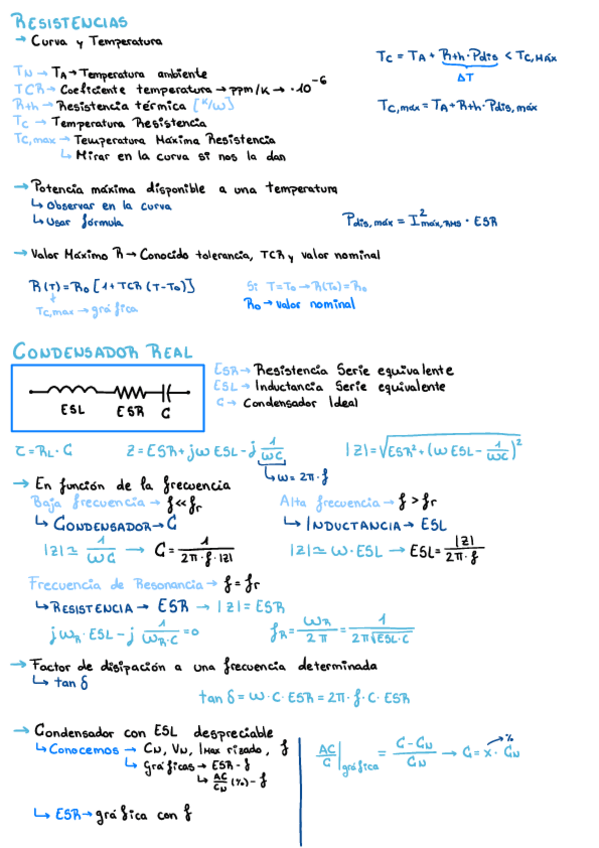 RESISTENCIAS
→ Curva y Temperatura
TN → TA → Temperatura ambiente
TCR → Coeficiente temperatura → ppm/K → ·10⁻⁶
Rth → Resistencia térmica [K/W]
Tc → Temperatura Resistencia
Tc,max → Temperatura Máxima Resistencia
↳ Mirar en la curva si nos la dan
Tc = TA + Rth · Pdis < Tc,MÁX
ΔT
Tc,max = TA + Rth · Pdis, max
→ Potencia máxima disponible a una temperatura
↳ Observar en la curva
↳ Usar fórmula
Pdis,máx = I²máx,RMS · ESR
→ Valor Máximo R → Conocido tolerancia, TCR y valor nominal
R(T) = R₀ [1 + TCR (T-T₀)]
Tc,max → gráfica
Si T=T₀ → R(T₀) = R₀
R₀ → valor nominal
CONDENSADOR REAL
ESL ESR C
ESR → Resistencia Serie equivalente
ESL → Inductancia Serie equivalente
C → Condensador Ideal
τ = RL · C
Z = ESR + jω ESL - j 1/ωC
|Z| = √(ESR² + (ω ESL - 1/ωC)²)
↳ ω = 2π · f
→ En función de la frecuencia
Baja frecuencia → f << fr
↳ CONDENSADOR → C
|Z| ≃ 1/ωC → C = 1/(2π · f · |Z|)
Alta frecuencia → f > fr
↳ INDUCTANCIA → ESL
|Z| ≃ ω · ESL → ESL = |Z|/(2π · f)
Frecuencia de Resonancia → f = fr
↳ RESISTENCIA → ESR → |Z| = ESR
jωR · ESL - j 1/(ωR · C) = 0
fR = ωR/2π = 1/(2π√ESL·C)
→ Factor de disipación a una frecuencia determinada
↳ tan δ
tan δ = ω · C · ESR = 2π · f · C · ESR
→ Condensador con ESL despreciable
↳ Conocemos → CN, VN, IMax rizado, f
↳ Gráficas → ESR - f
↳ ΔC/CN (%) - f
↳ ESR → gráfica con f
ΔC/C |gráfica = (C - CN)/CN → C = x · CN
%